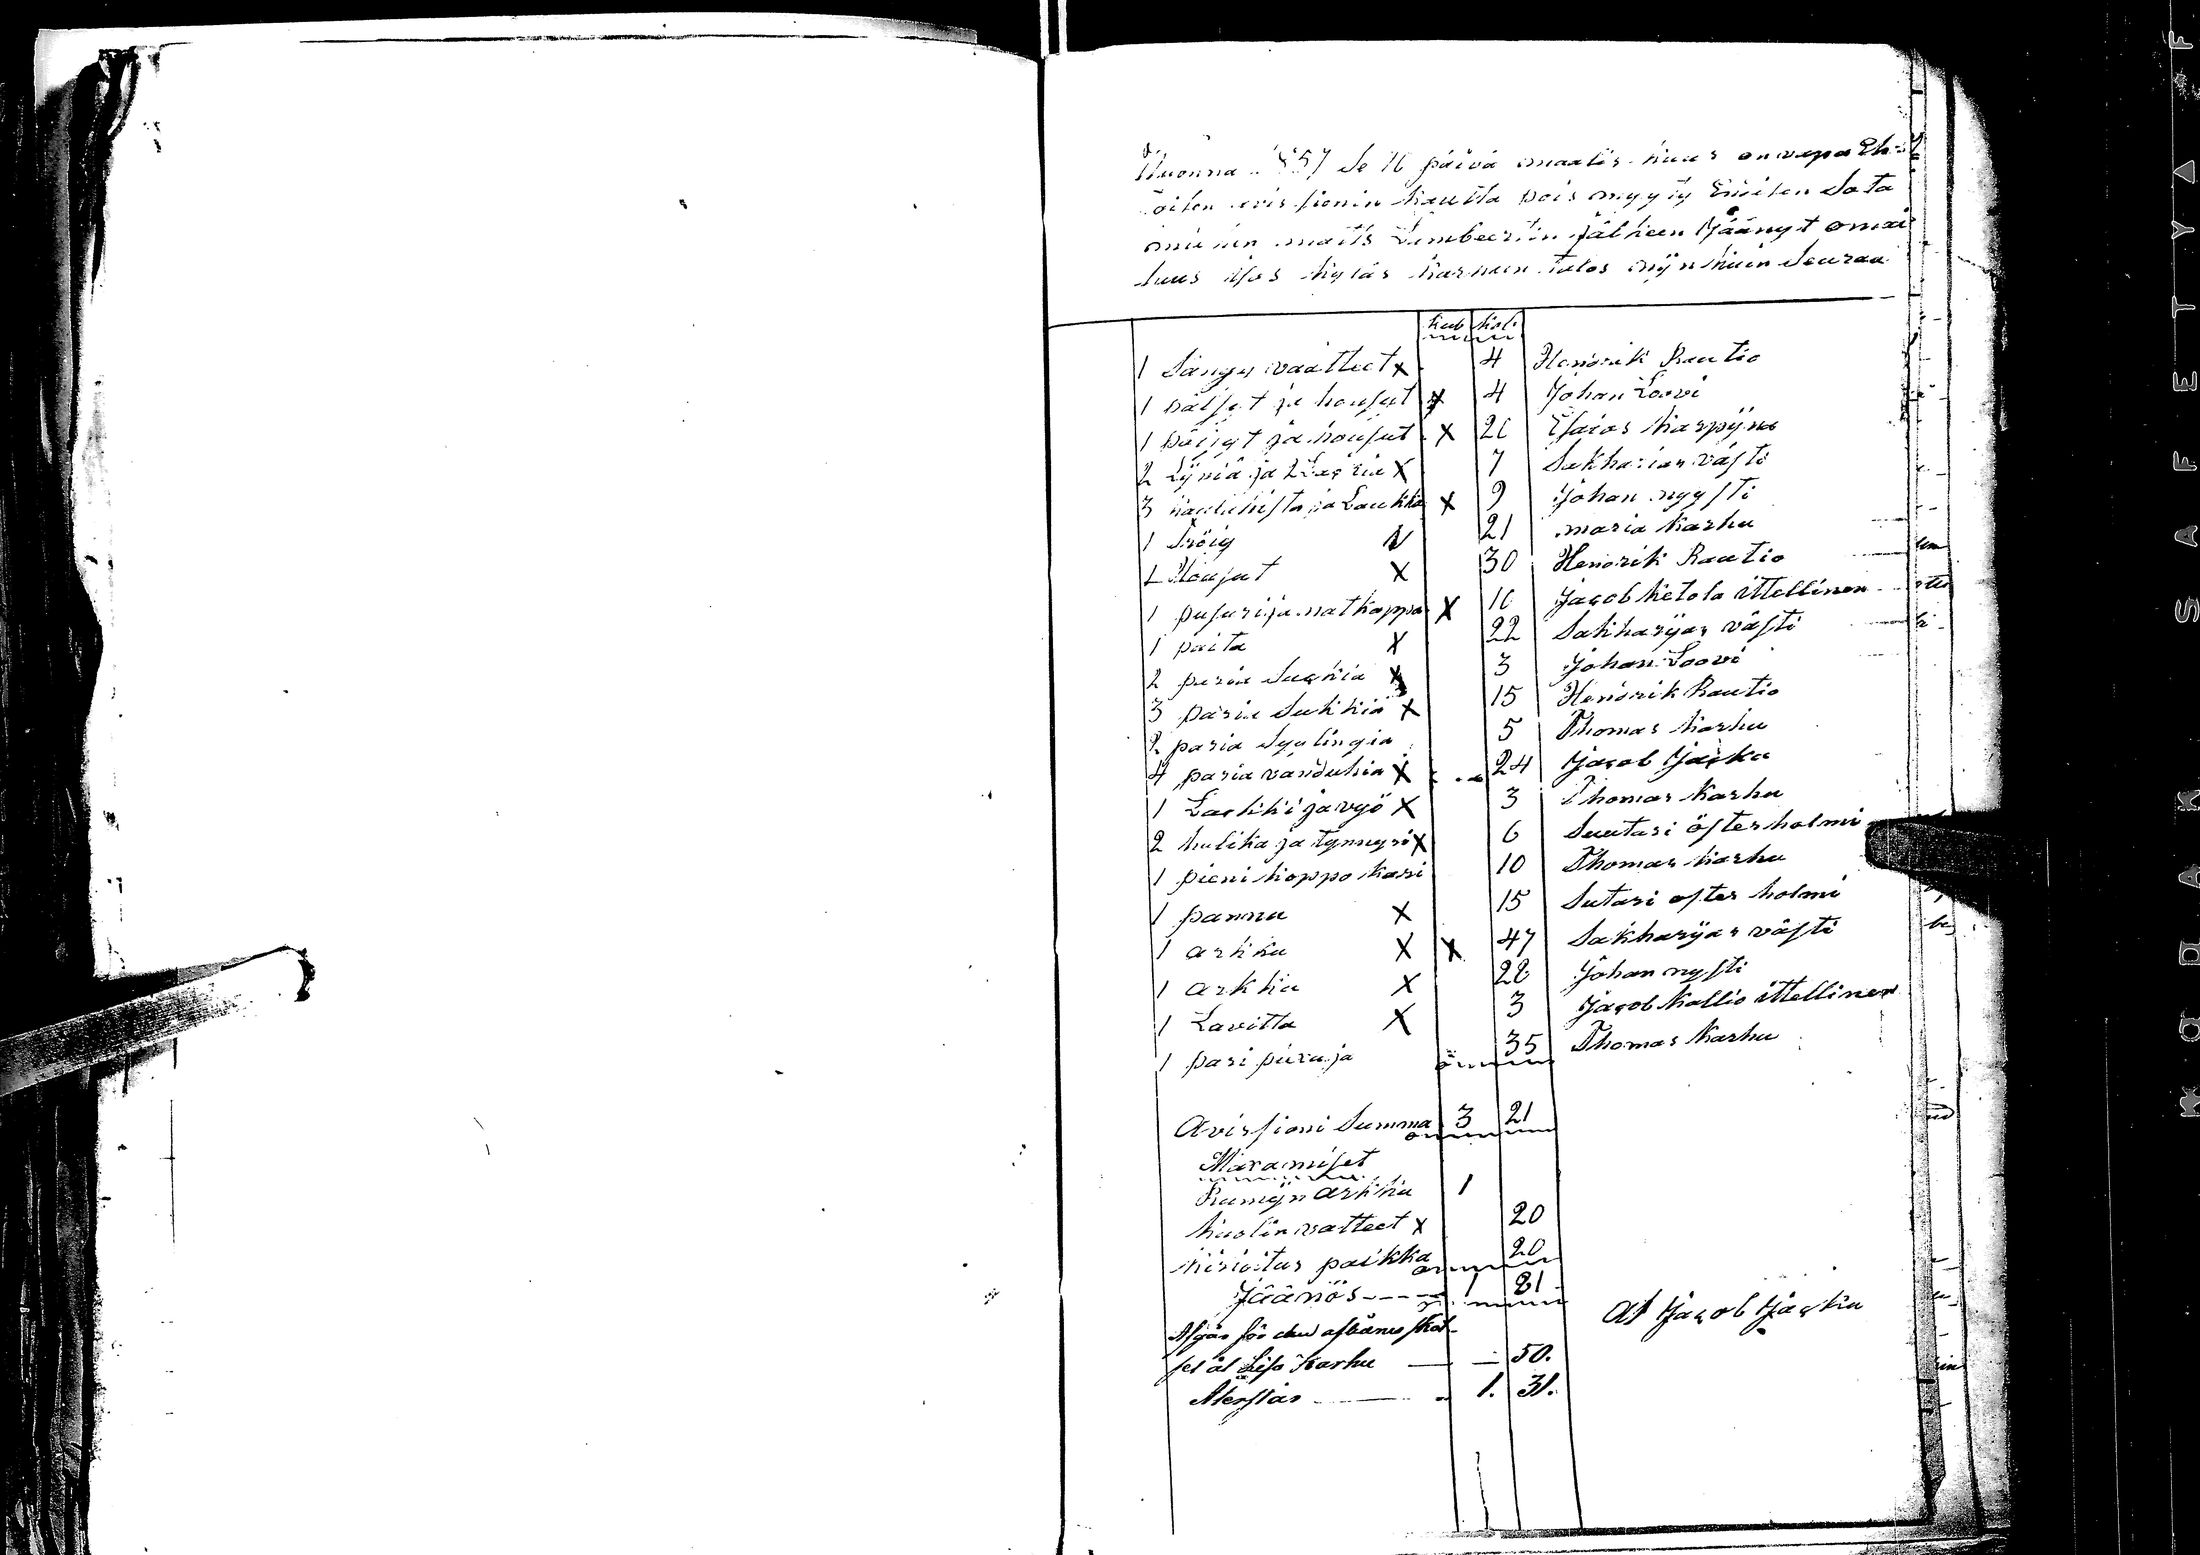 Wuonna 1857 Se 16 päivä maalis kuus on vapa Eh-
toisen avisionin kautta pois myyty Entisen Sota
miehen matts Limbeertin jälkeen Jäänyt omai
suus Kyläs karhun talos nijnkuin Seuraa
Rub Kol.
1 Sängy vaatteet x 4 Hendrik Rautio
1 pälsyt ja housut x 4 Johan Loovi
1 pöxyt ja housut x 20 Esaias Karpijna
2 Lijniä ja 2 x 7 Sakharias västi
3 ja Laukka x 9 Johan nyysti
1 Tröiy x 21 maria Karhu
1 Housut x 30 Hendrik Rautio
1 pusuri ja natkappa x 10 Jacob Ketola ittellinen
1 paita x 22 Sakharijas västi
2 paria Suckia x 3 Johan Loovi
3 paria Sukkia x 15 Hendrik Rautio
2 paria Syylingia 5 Thomas Karhu
4 paria vanduhia x 24 Jacob Jacku
1 Lackki ja vyö x 3 Thomas Karhu
2 kulika ja tynnyri x 6 Suutari österholmi
1 pieni koppo kari 10 Thomas Karhu
1 pannu x 15 Sutari oster holmi
1 arkku x x 47 Sakharijas västi
1 arkku x 28 Johan nysti
1 Lavitta x 3 Jacob Kallio ittellinen
1 pari 35 Thomas Karhu
Avisioni Summa 3 21
Maxamiset
Rumijn arkku 1
kuolin vatteet x 20
kirioitus paikka 20
Jäänös - - - - 1 81
Afgår för
sel åt Lisa Karhu — — 50.
Återstår — " 1. 31.
At Jacob Jacku